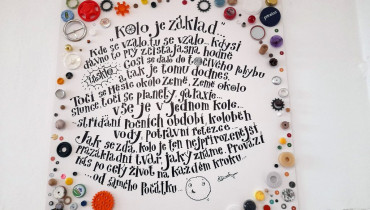 "Kolo je základ..."
Kde se vzalo, tu se vzalo... kdysi
dávno to prý zčistajasna hodně
těžkého cosi se dalo do točivého pohybu
a tak je tomu dodnes.
Točí se Měsíc okolo Země, Země okolo
slunce, točí se planety, galaxie...
vše je v jednom kole...
střídání ročních období, koloběh
vody, potravní řetězce...
Jak se zdá, kolo je ten nejpřirozenější
prazákladní tvar, jaký známe. Provází
nás po celý život na každém kroku...
...od samého Počátku